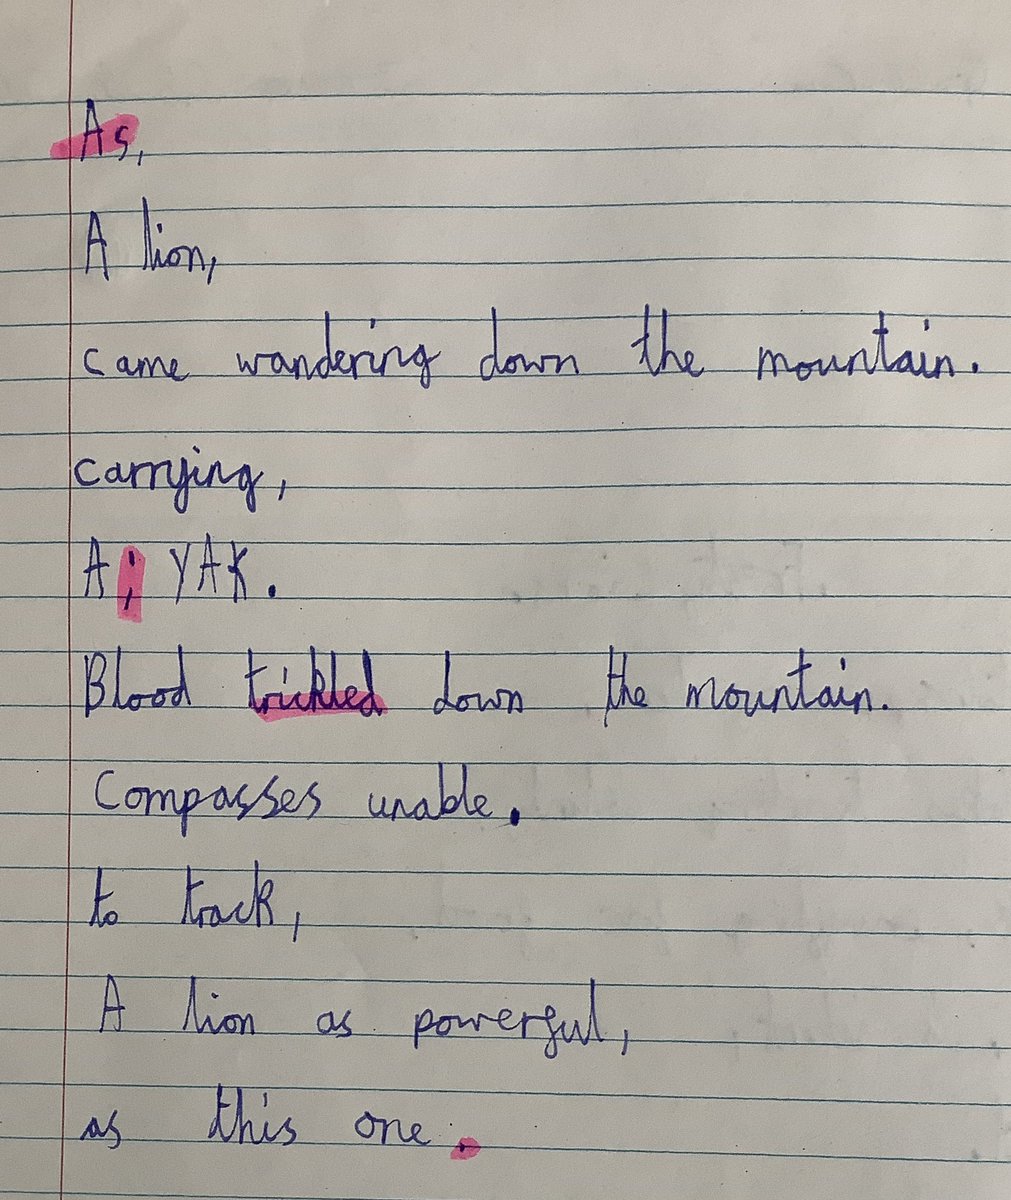 As,
A lion,
came wandering down the mountain.
carrying,
A; YAK.
Blood trickled down the mountain.
Compasses unable.
to track,
A lion as powerful,
as this one.